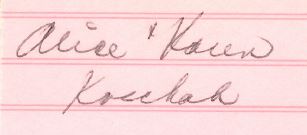 Alice & Karen
Koschak